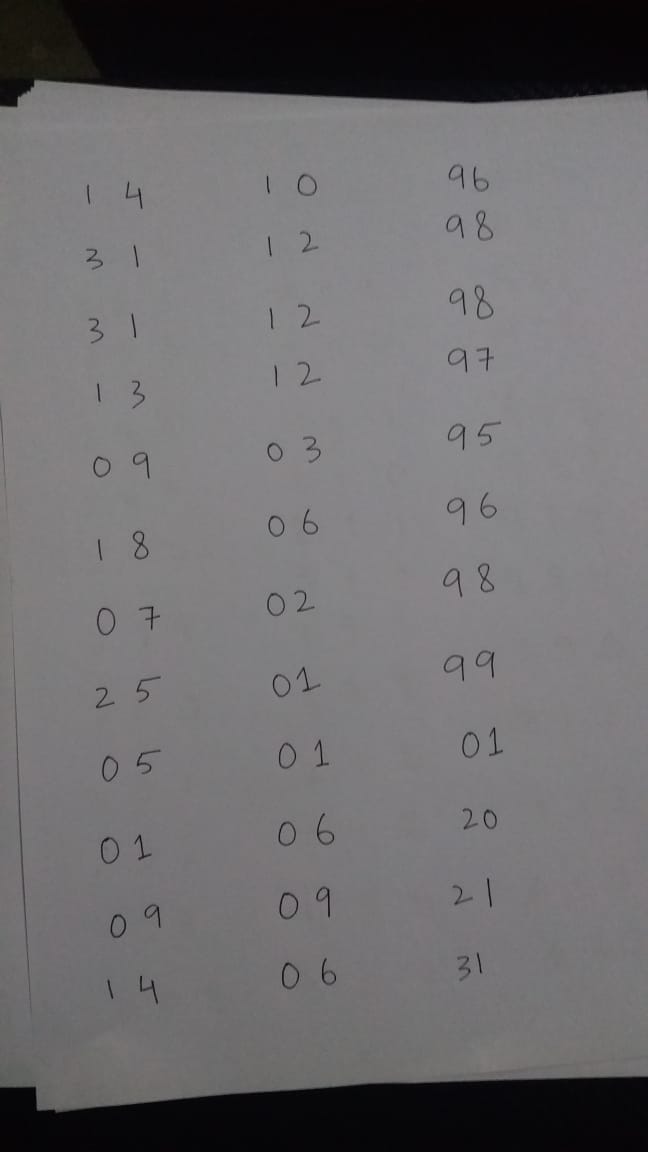 14 10 96
31 12 98
31 12 98
13 12 97
09 03 95
18 06 96
07 02 98
25 01 99
05 01 01
01 06 20
09 09 21
14 06 31